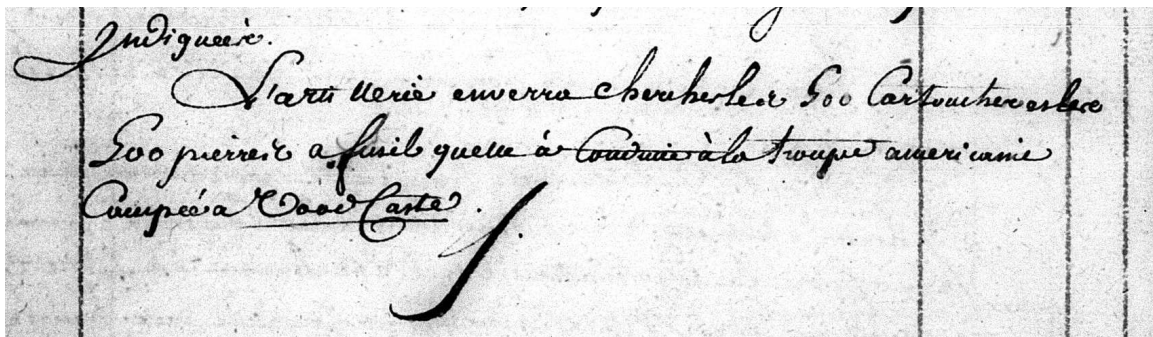 Indiquées.
L'artillerie enverra chercher les 500 Cartouches et les
500 pierres a fusil quelle à Conduit à la troupe americaine
Campée a Good Caste.